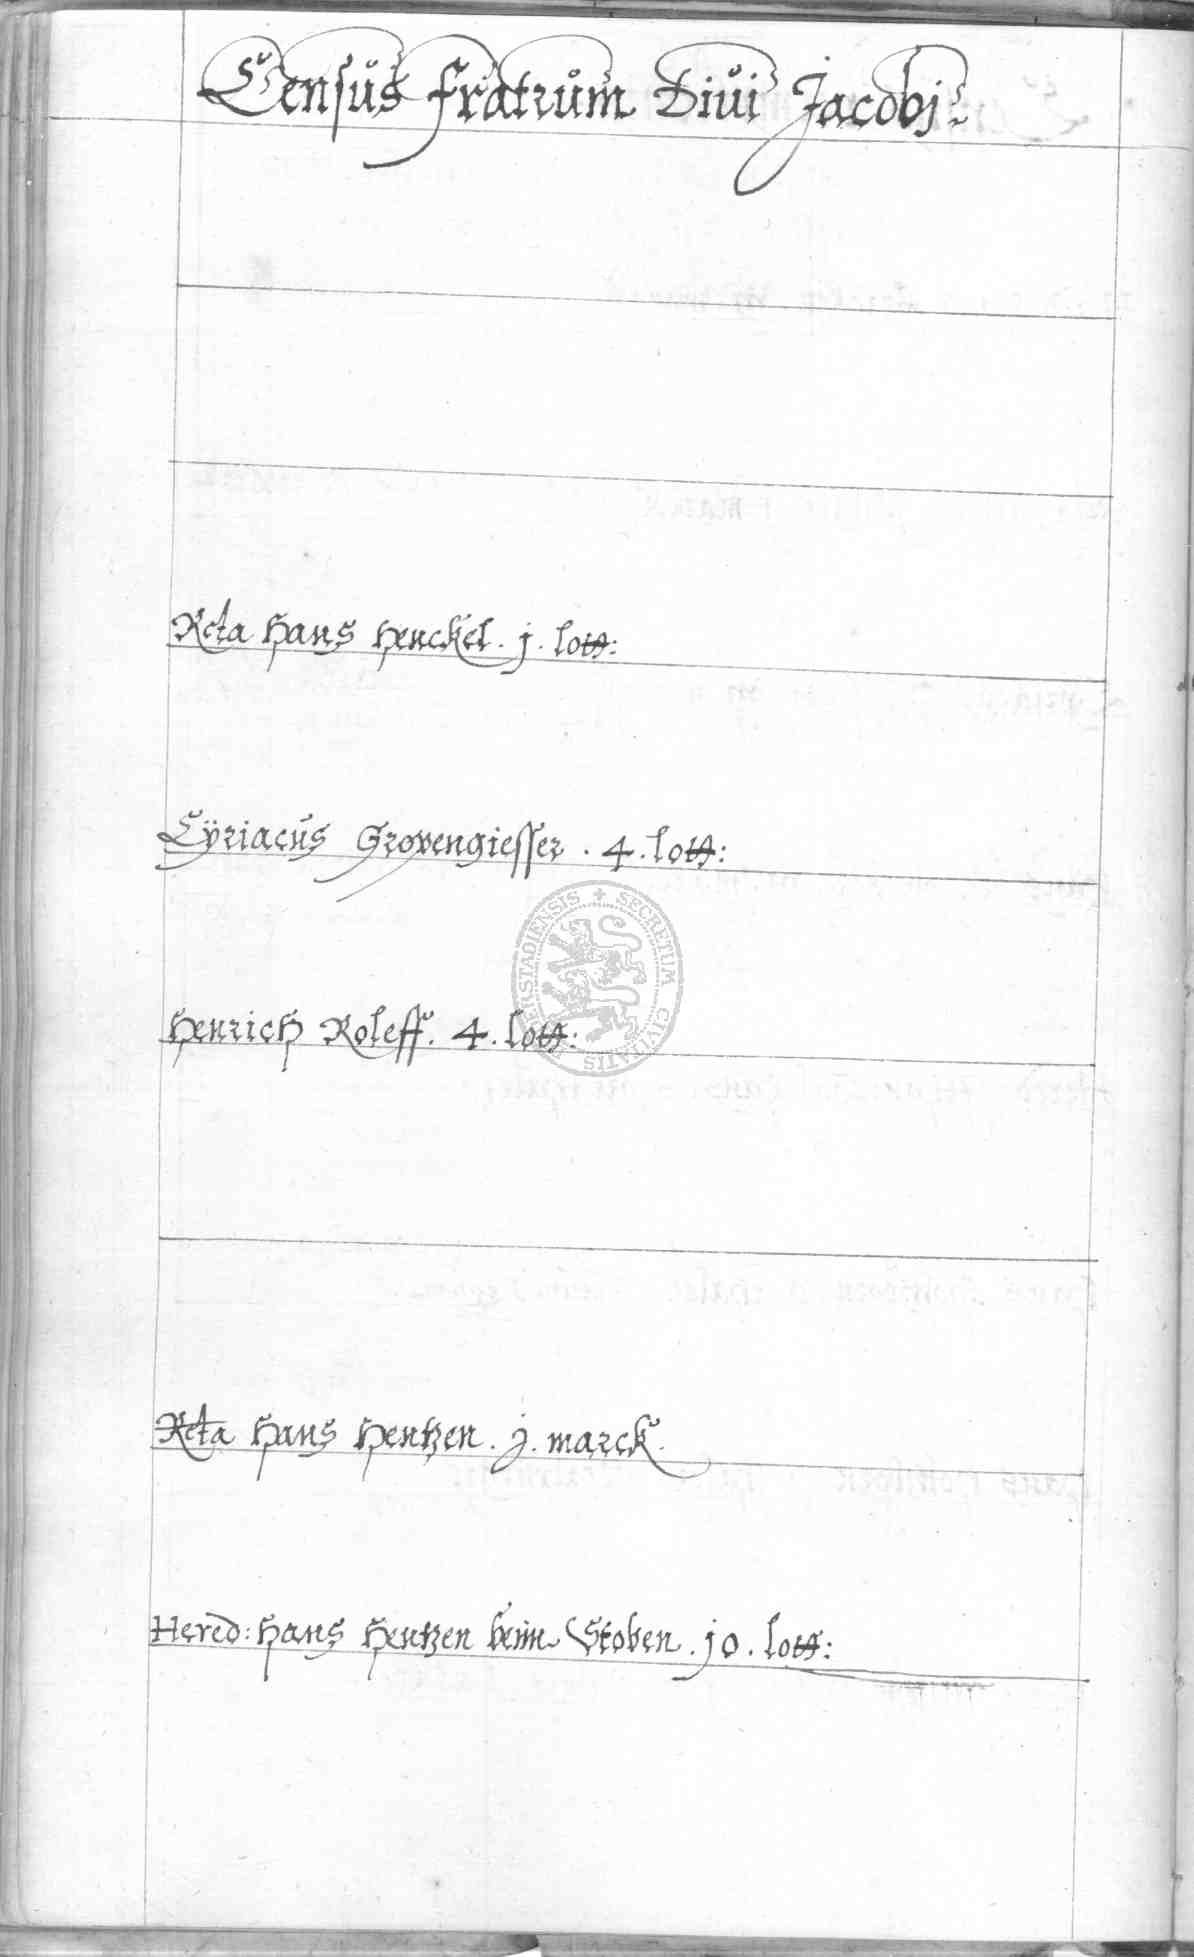 Census fratrum Divi Jacobj:
Rcta Hans Henckel . j . lott:
Cÿriacus Gropengiesser . 4 . lott:
Henrich Roleff . 4 . lott:
Rcta Hans Hentzen . j . marck.
Hered: Hans Hentzen beim Stoben . jo . lott:
SECRETUM CIVITATIS